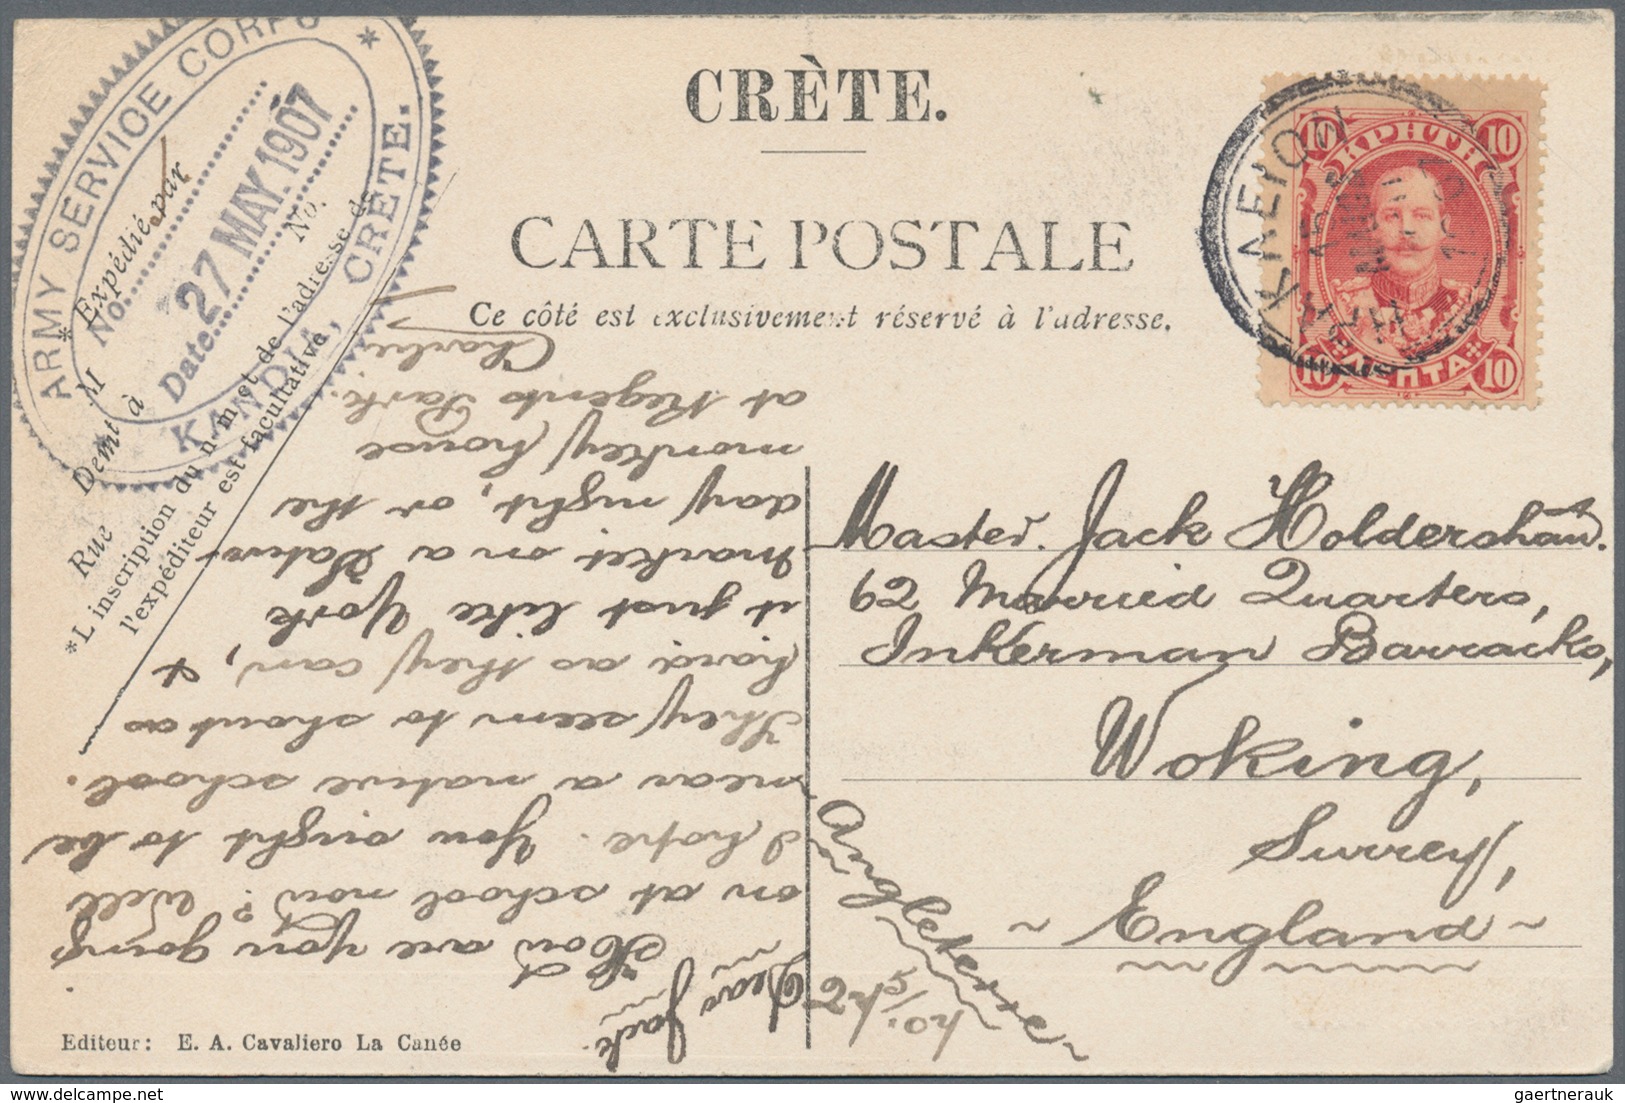 CRÈTE.
CARTE POSTALE
Ce côté est exclusivement réservé à l'adresse.
ARMY SERVICE CORPS
No.
27 MAY. 1907
Date
No.
KANDIA, CRETE.
* Expédié par
M
Demt à
Rue
*L inscription du n m et de l'adresse de
l'expéditeur est facultative
10 ΚΡΗΤΗ 10
10 ΛΕΠΤΑ 10
Master. Jack Holdershaw.
62 Married Quarters,
Inkerman Barracks,
Woking,
Surrey,
~ England ~
Angleterre
27/5/07.
Dear Jack.
How are you going
on at school now? Well
I hope. You ought to be
near a native school.
They seem to shout as
hard as they can, &
it just like York
market on a Satur-
day night, or the
monkey house
at Regents Park.
Charlie
Editeur: E. A. Cavaliero La Canée
gaertnerauk / delcampe.net